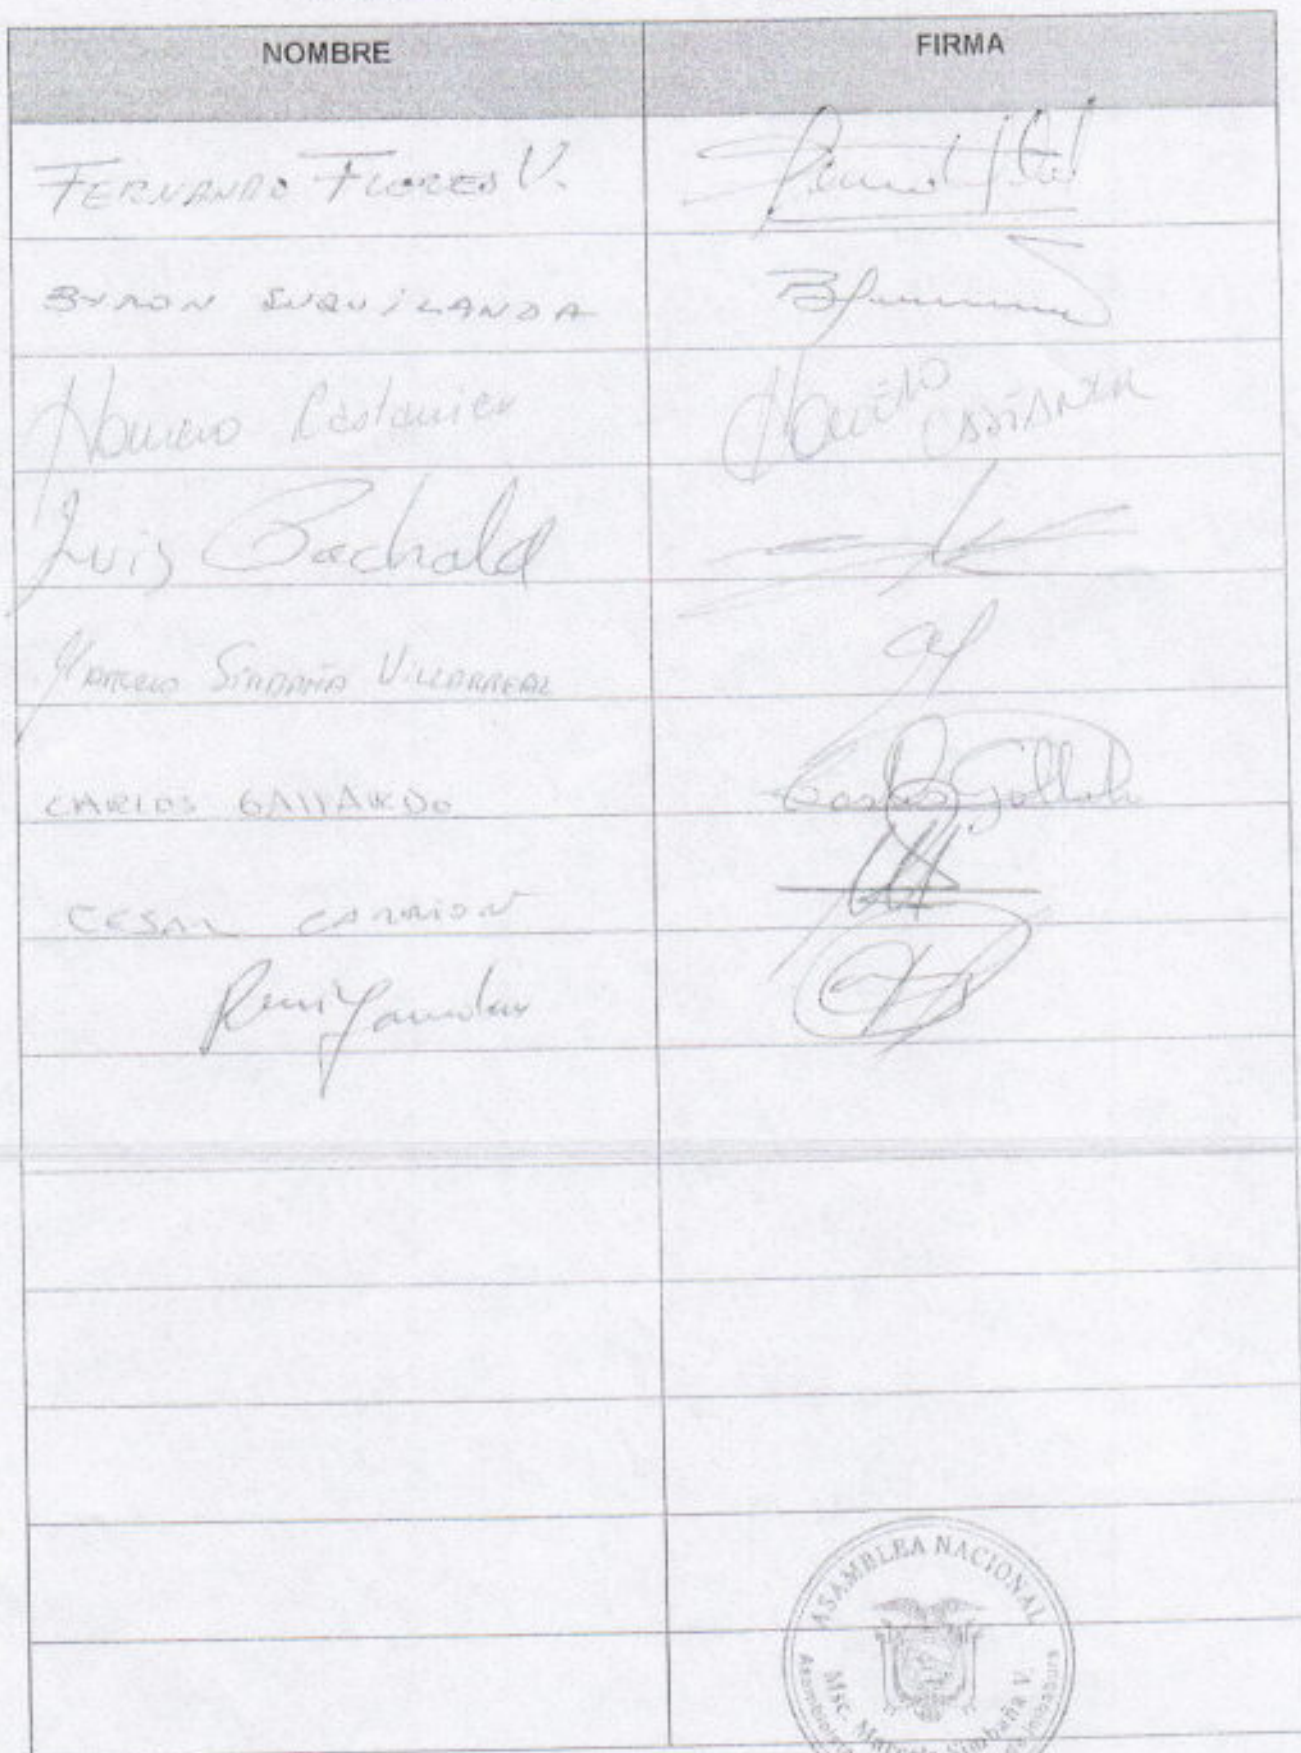 NOMBRE FIRMA
FERNANDO FLORES V.
BYRON SUQUILANDA
Homero Castanier HOMERO CASTANIER
Luis Pachala
MARCELO SIMBAÑA VILLARREAL
CARLOS GALLARDO Carlos Gallardo
CESAR CARRION
René Yandun
ASAMBLEA NACIONAL
Msc. Marcelo Simbaña V.
Asambleísta de Imbabura